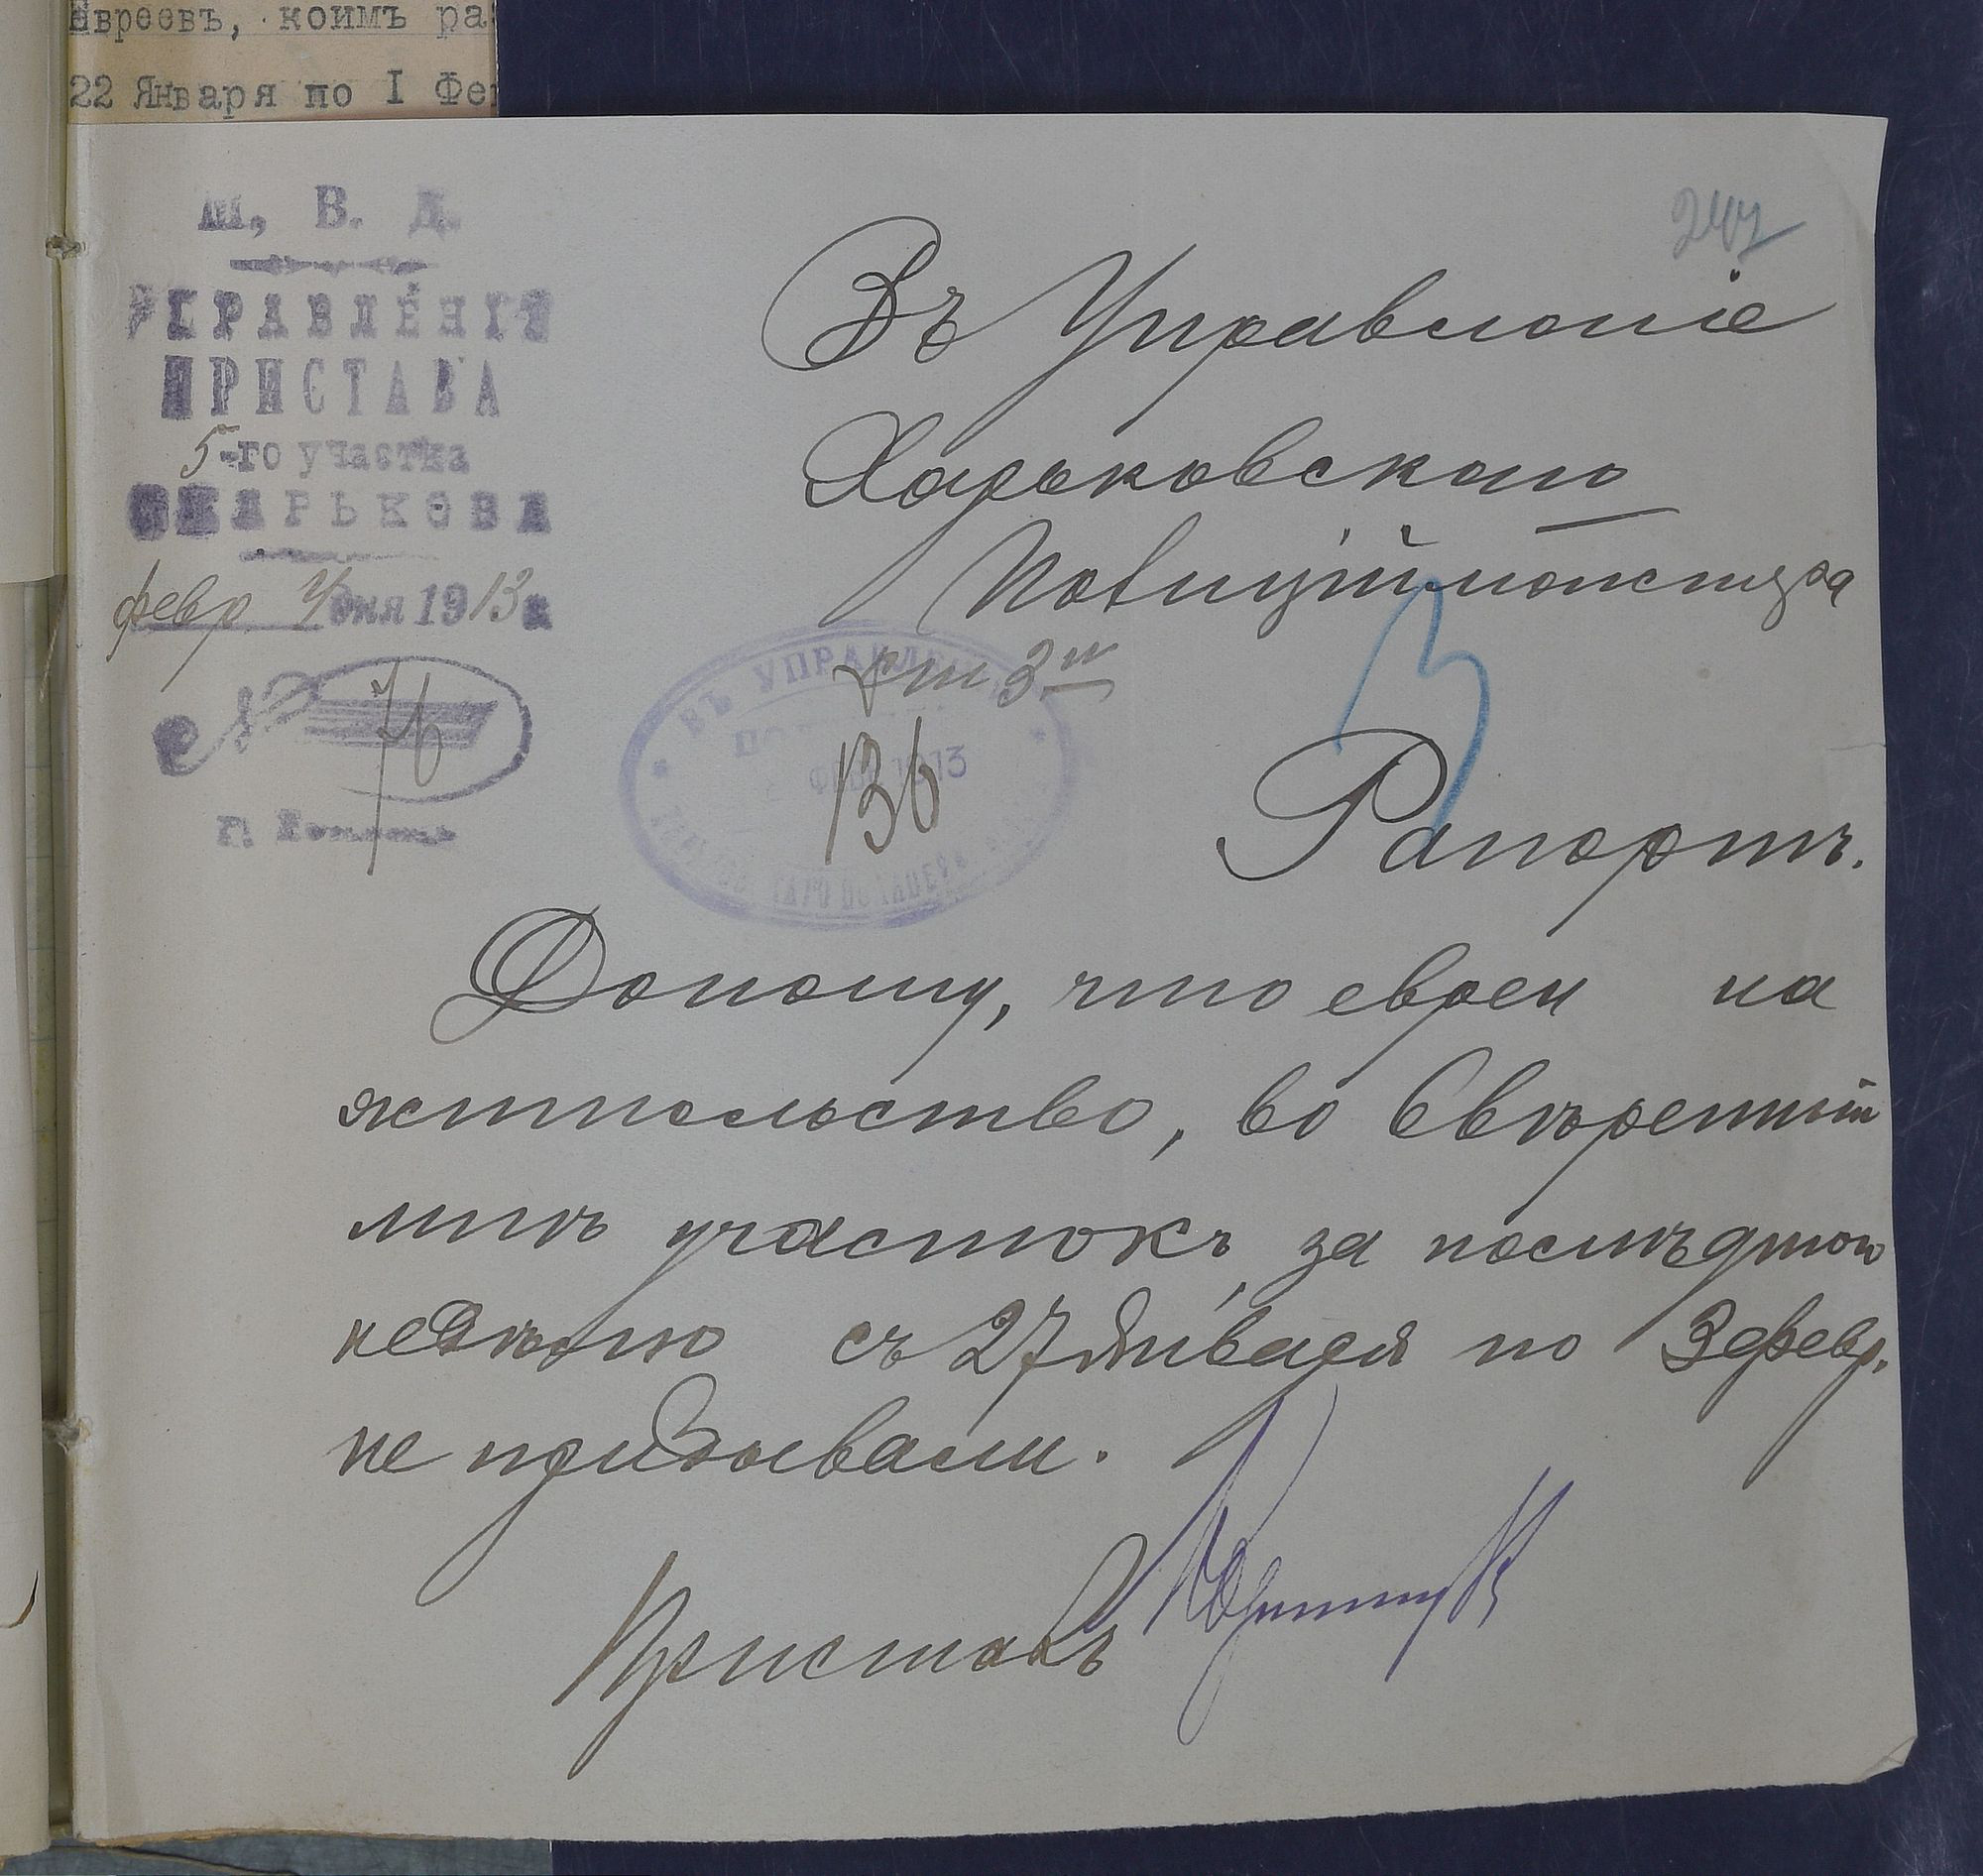 Евреевъ, коимъ ра
22 Января по I Фе
М. В. Д.
УПРАВЛЕНІЕ
ПРИСТАВА
5-го участка
Г. ХАРЬКОВА
февр. 4 дня 1913 г.
№ 76
г. Харьковъ
247
Въ Управленіе
Харьковскаго
Полиціймейстера
ВЪ УПРАВЛЕН
ФЕВ 1913
136
Рапортъ.
Доношу, что евреи на
жительство, во ввѣренный
мнѣ участокъ, за послѣднюю
недѣлю съ 27 Января по 3 февр.
не прибывали.
Приставъ